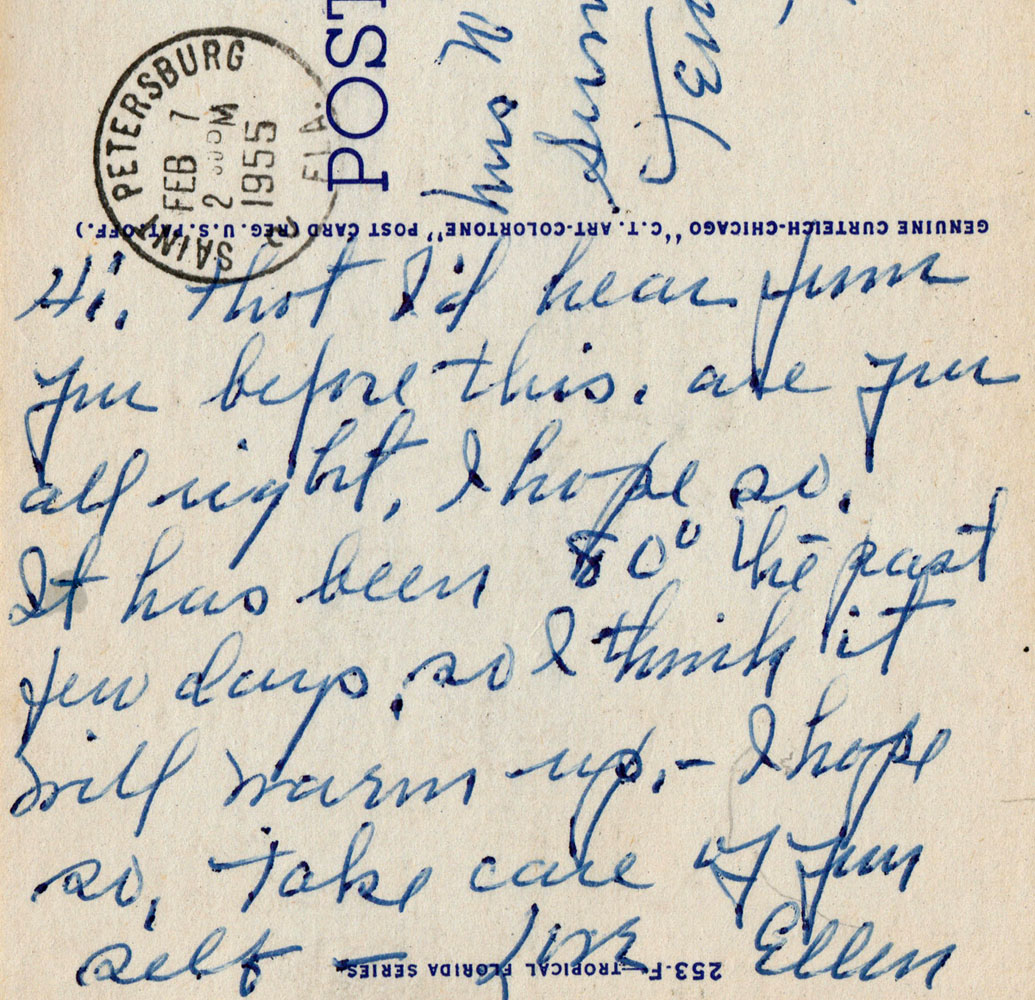 SAINT PETERSBURG
FLA.
FEB 7
2 30 PM
1955
POST
Mrs W
GENUINE CURTEICH-CHICAGO "C.T. ART-COLORTONE" POST CARD (REG. U.S. PAT. OFF.)
Hi, thot I'd hear from
you before this. are you
all right, I hope so.
It has been 80° the past
few days, so I think it
will warm up,- I hope
so, take care of your
self - Love Ellen
253-F—TROPICAL FLORIDA SERIES